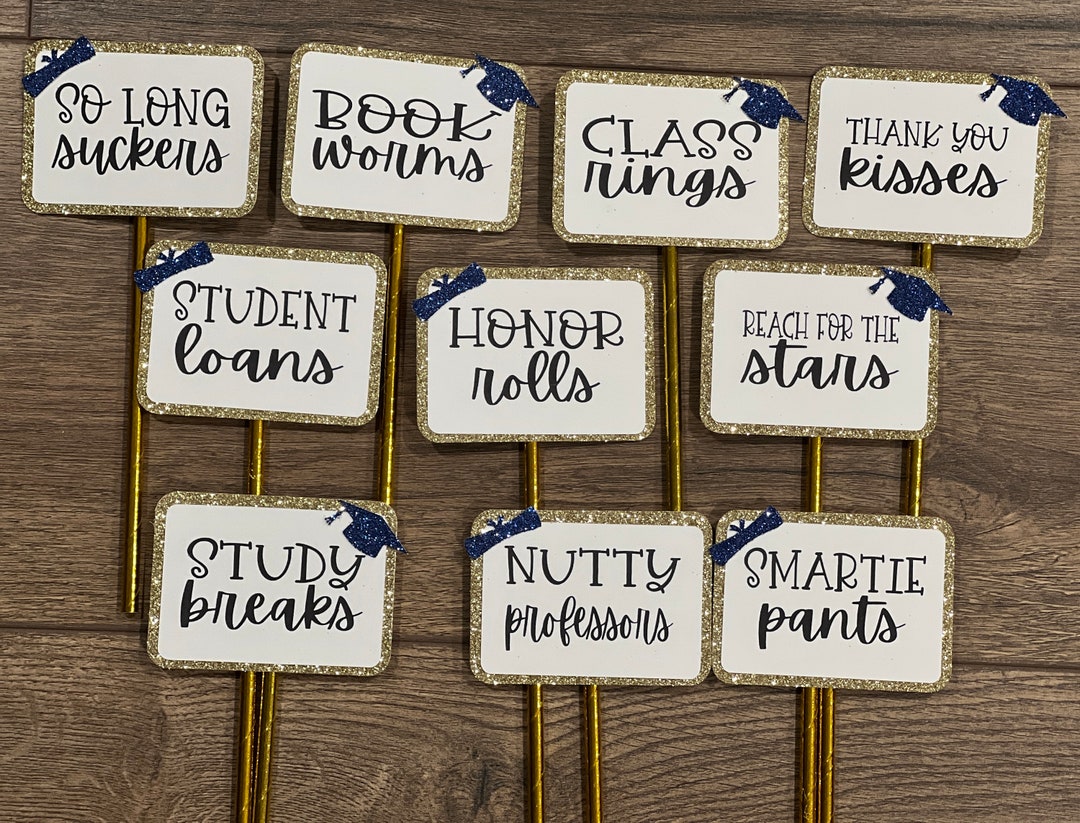 SO LONG
suckers
BOOK
worms
CLASS
rings
THANK YOU
kisses
STUDENT
loans
HONOR
rolls
REACH FOR THE
stars
STUDY
breaks
NUTTY
professors
SMARTIE
pants